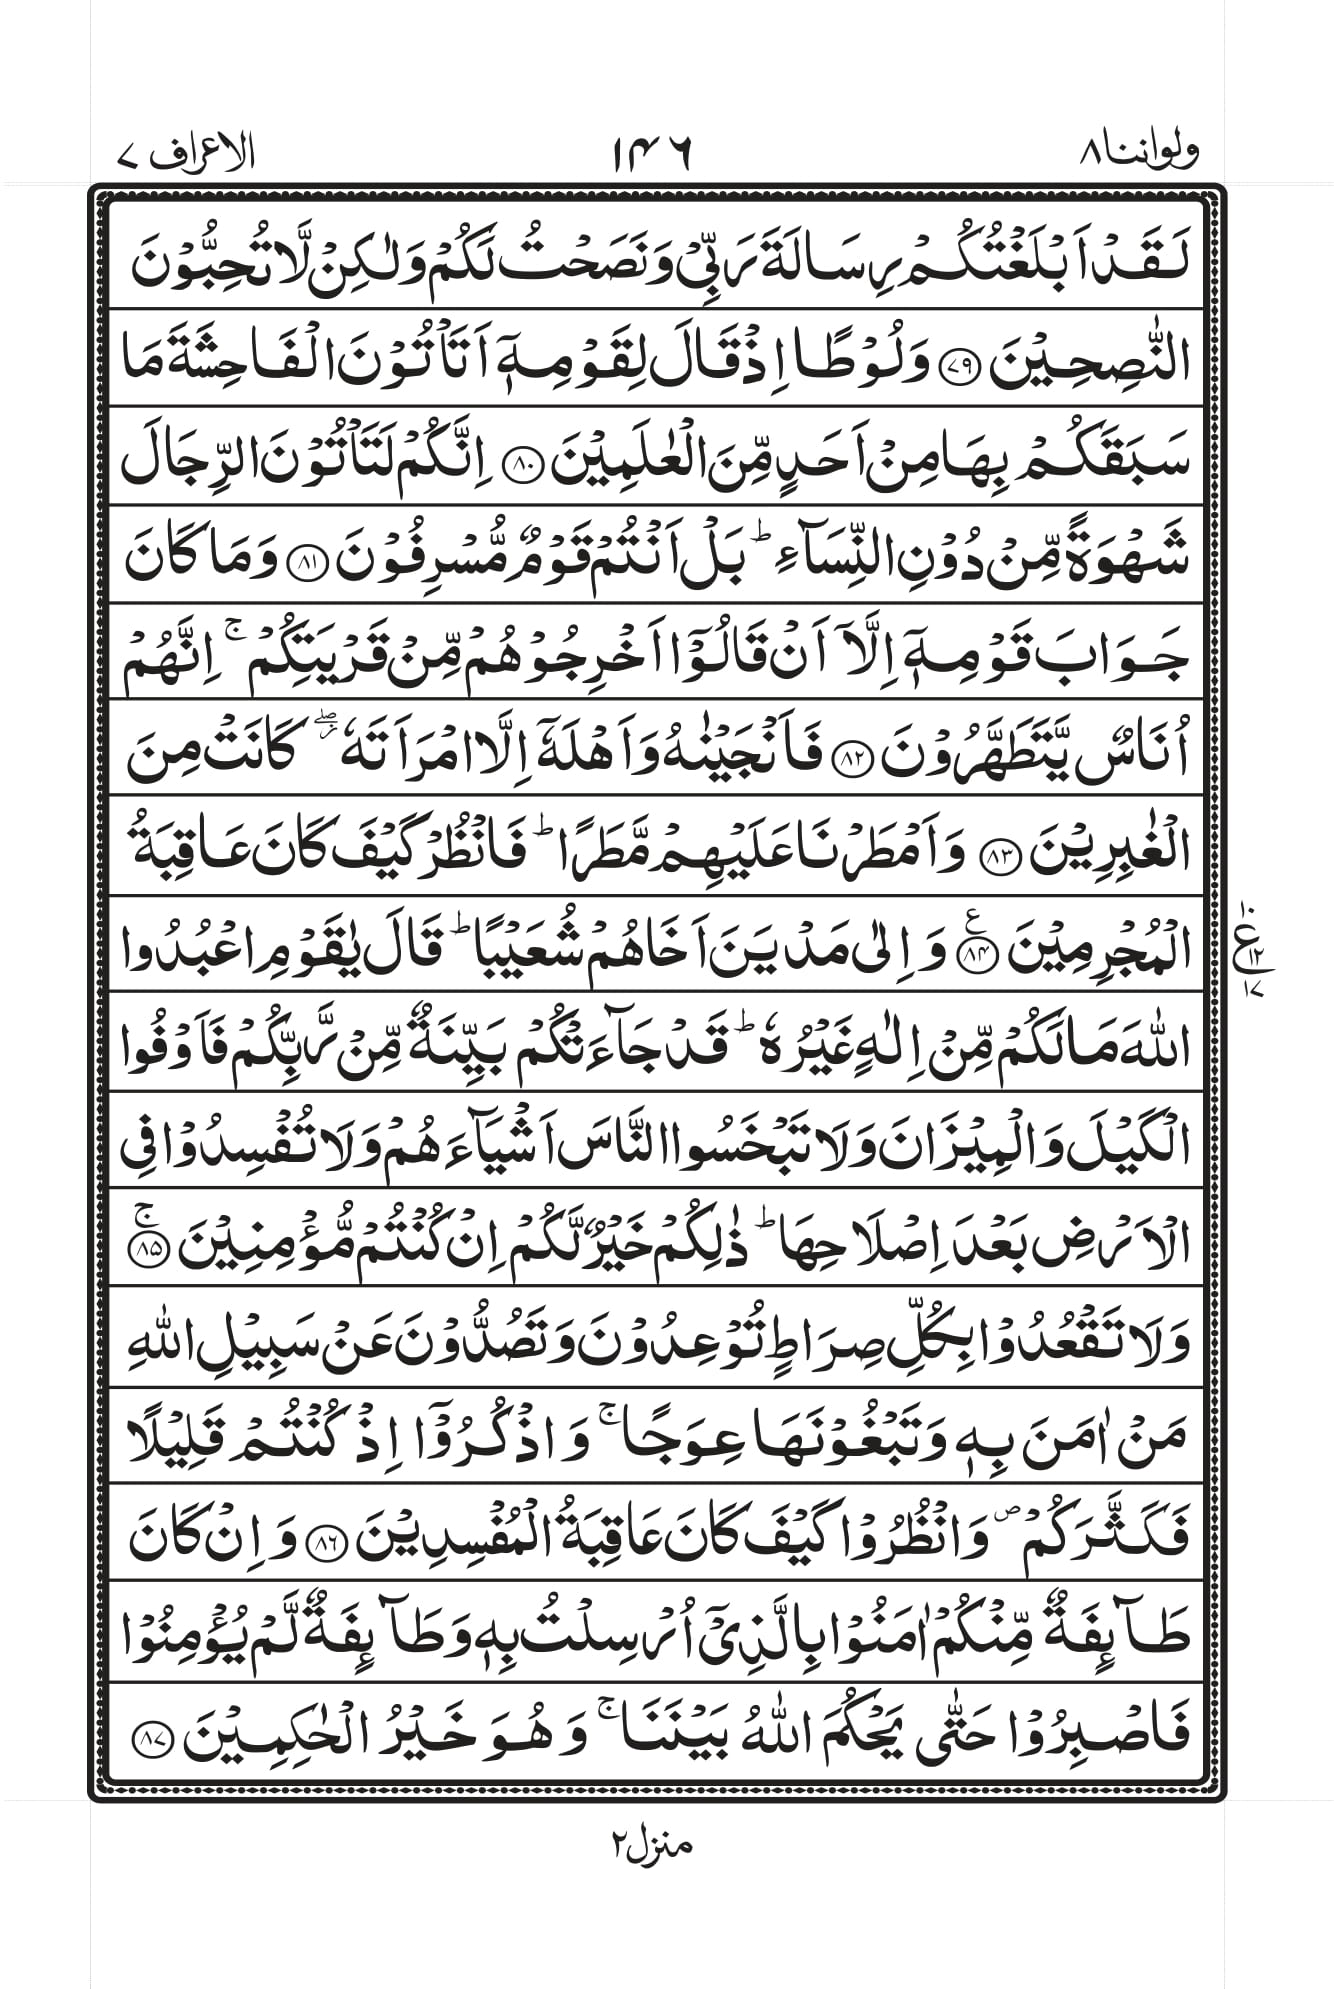 ولواننا ٨ ١۴٦ الاعراف ٧
لَـقَـدْ اَبْلَغْتُكُـمْ رِسَـالَةَ رَبِّىْ وَنَصَحْتُ لَكُمْ وَلٰـكِنْ لَّا تُحِبُّوْنَ
النّٰصِحِيْنَ ﴿٧٩﴾ وَلُـوْطًـا اِذْ قَـالَ لِقَـوْمِـهٖۤ اَتَاْتُـوْنَ الْفَـاحِشَةَ مَا
سَـبَقَكُـمْ بِهَـا مِنْ اَحَـدٍ مِّنَ الْعٰلَمِيْنَ ﴿٨٠﴾ اِنَّكُمْ لَتَاْتُوْنَ الرِّجَالَ
شَهْوَةً مِّنْ دُوْنِ النِّسَآءِ ؕ بَلْ اَنْتُمْ قَوْمٌ مُّسْرِفُوْنَ ﴿٨١﴾ وَمَا كَانَ
جَـوَابَ قَـوْمِـهٖۤ اِلَّاۤ اَنْ قَالُـوْۤا اَخْرِجُوْهُمْ مِّنْ قَرْيَتِكُمْ ۚ اِنَّهُمْ
اُنَاسٌ يَّتَطَهَّرُوْنَ ﴿٨٢﴾ فَاَنْجَيْنٰهُ وَاَهْلَهٗۤ اِلَّا امْرَاَتَهٗ ۖؗ كَانَتْ مِنَ
الْغٰبِرِيْنَ ﴿٨٣﴾ وَاَمْطَرْنَا عَلَيْهِمْ مَّطَرًا ؕ فَانْظُرْ كَيْفَ كَانَ عَـاقِبَةُ
الْمُجْرِمِيْنَ ﴿٨۴﴾ ع وَ اِلٰى مَدْيَنَ اَخَاهُمْ شُعَيْبًا ؕ قَالَ يٰقَوْمِ اعْبُدُوا
ع ١٠ ١٢ ١٧
اللّٰهَ مَـا لَكُمْ مِّنْ اِلٰهٍ غَيْرُهٗ ؕ قَدْ جَآءَتْكُمْ بَيِّنَةٌ مِّنْ رَّبِّكُمْ فَاَوْفُوا
الْكَيْلَ وَالْمِيْزَانَ وَلَا تَبْخَسُوا النَّاسَ اَشْيَآءَهُمْ وَلَا تُـفْسِدُوْا فِى
الْاَرْضِ بَعْدَ اِصْلَاحِهَا ؕ ذٰلِكُمْ خَيْرٌ لَّكُمْ اِنْ كُنْتُمْ مُّؤْمِنِيْنَ ۚ ﴿٨۵﴾
وَلَا تَقْعُدُوْا بِكُلِّ صِرَاطٍ تُوْعِدُوْنَ وَتَصُدُّوْنَ عَنْ سَبِيْلِ اللّٰهِ
مَنْ اٰمَنَ بِـهٖ وَتَبْغُـوْنَهَـا عِـوَجًـا ۚ وَاذْكُـرُوْۤا اِذْ كُنْتُـمْ قَلِيْلًا
فَـكَـثَّـرَكُمْ ۪ وَانْظُرُوْا كَيْفَ كَانَ عَاقِبَةُ الْمُفْسِدِيْنَ ﴿٨٦﴾ وَ اِنْ كَانَ
طَـآئِفَةٌ مِّنْكُمْ اٰمَنُوْا بِالَّذِىْۤ اُرْسِلْتُ بِهٖ وَطَآئِفَةٌ لَّمْ يُؤْمِنُوْا
فَاصْـبِرُوْا حَتّٰى يَحْكُمَ اللّٰهُ بَيْنَنَا ۚ وَهُـوَ خَـيْرُ الْحٰكِمِـيْنَ ﴿٨٧﴾
منزل ٢